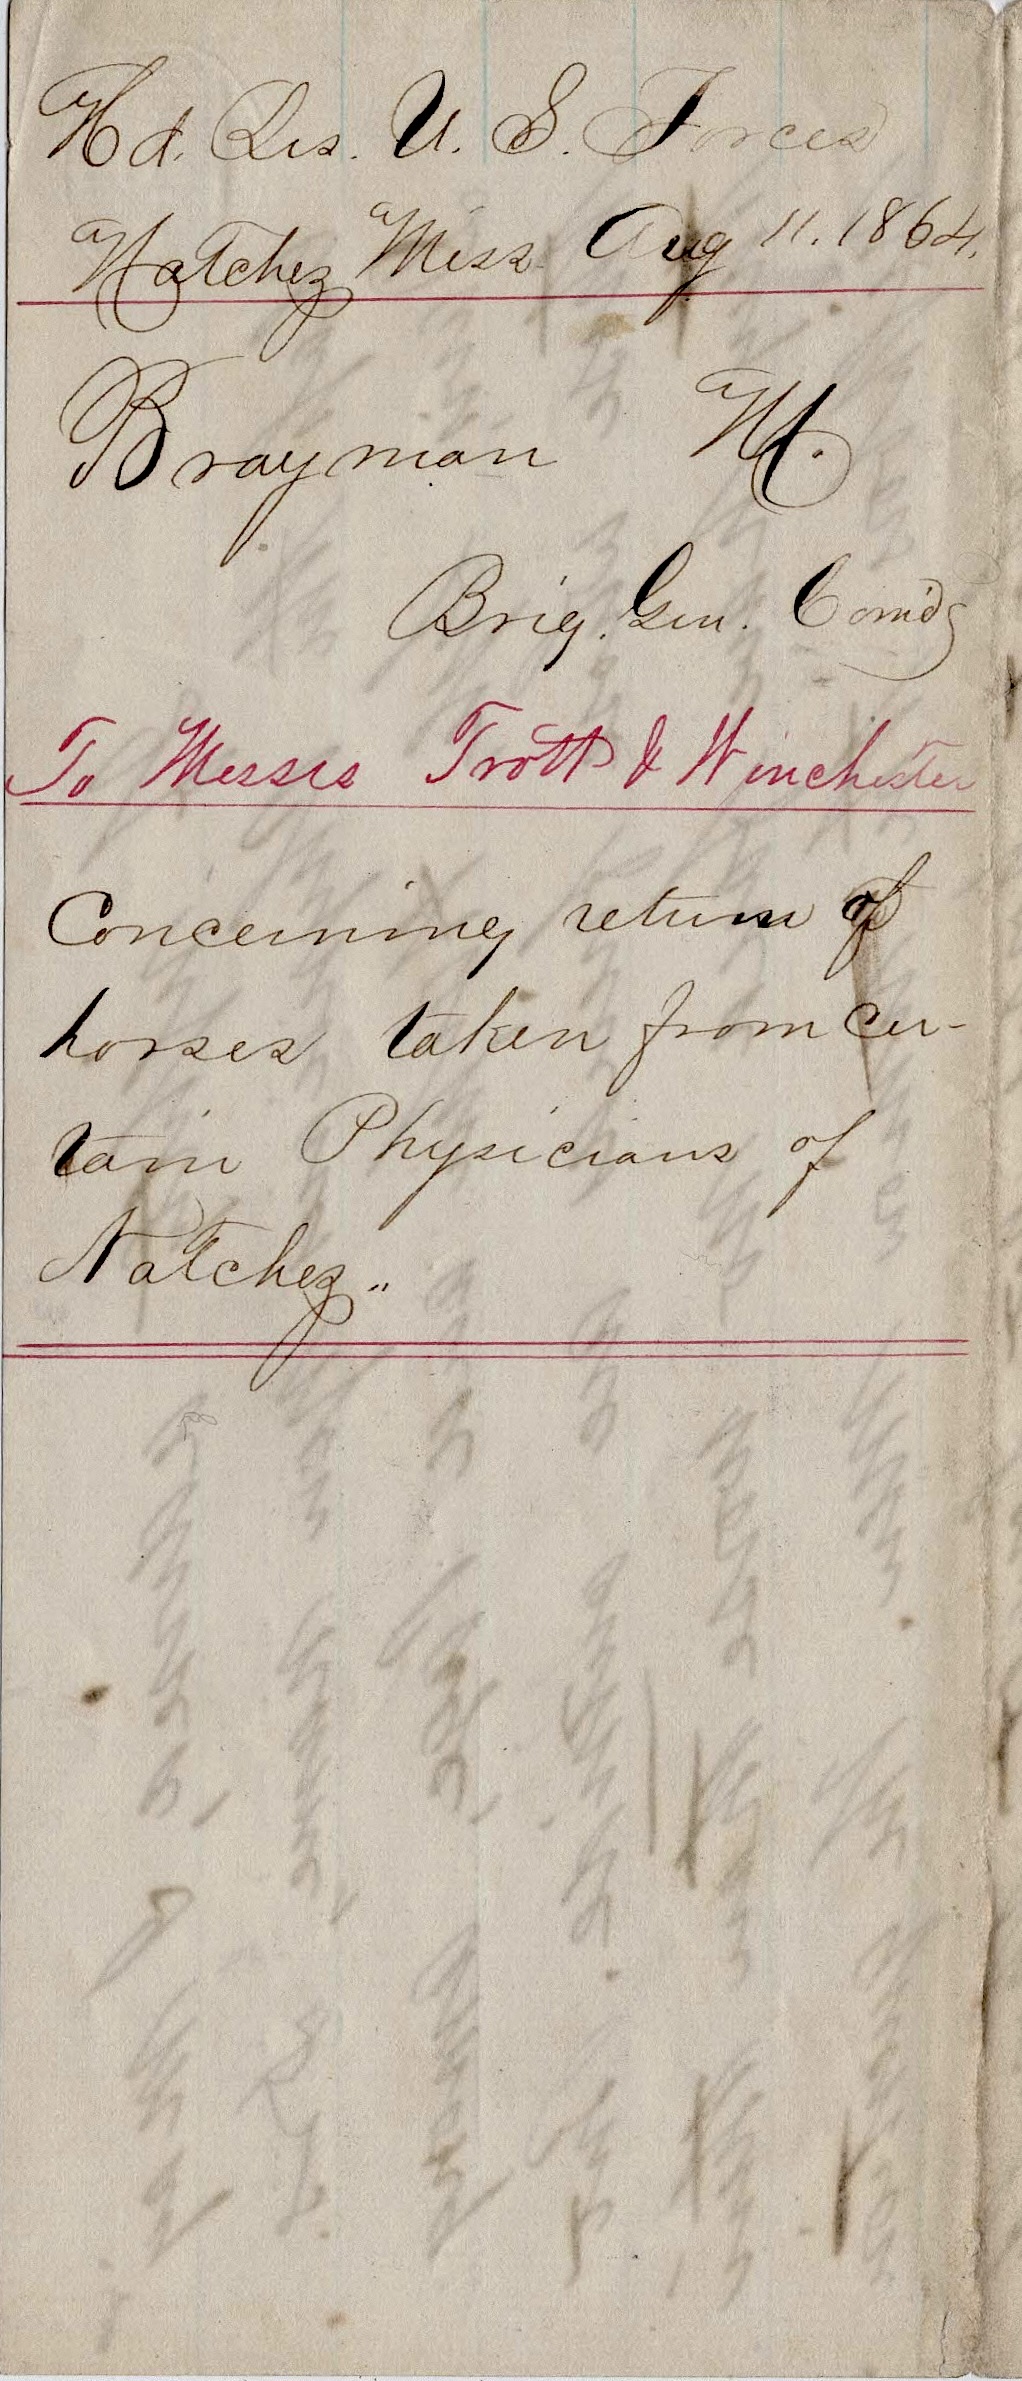 Hd. Qrs. U. S. Forces
Natchez Miss Aug 11. 1864.
Brayman M.
Brig. Gen. Com'dg
To Messrs Trott & Winchester
Concerning return of
horses taken from cer-
tain Physicians of
Natchez."